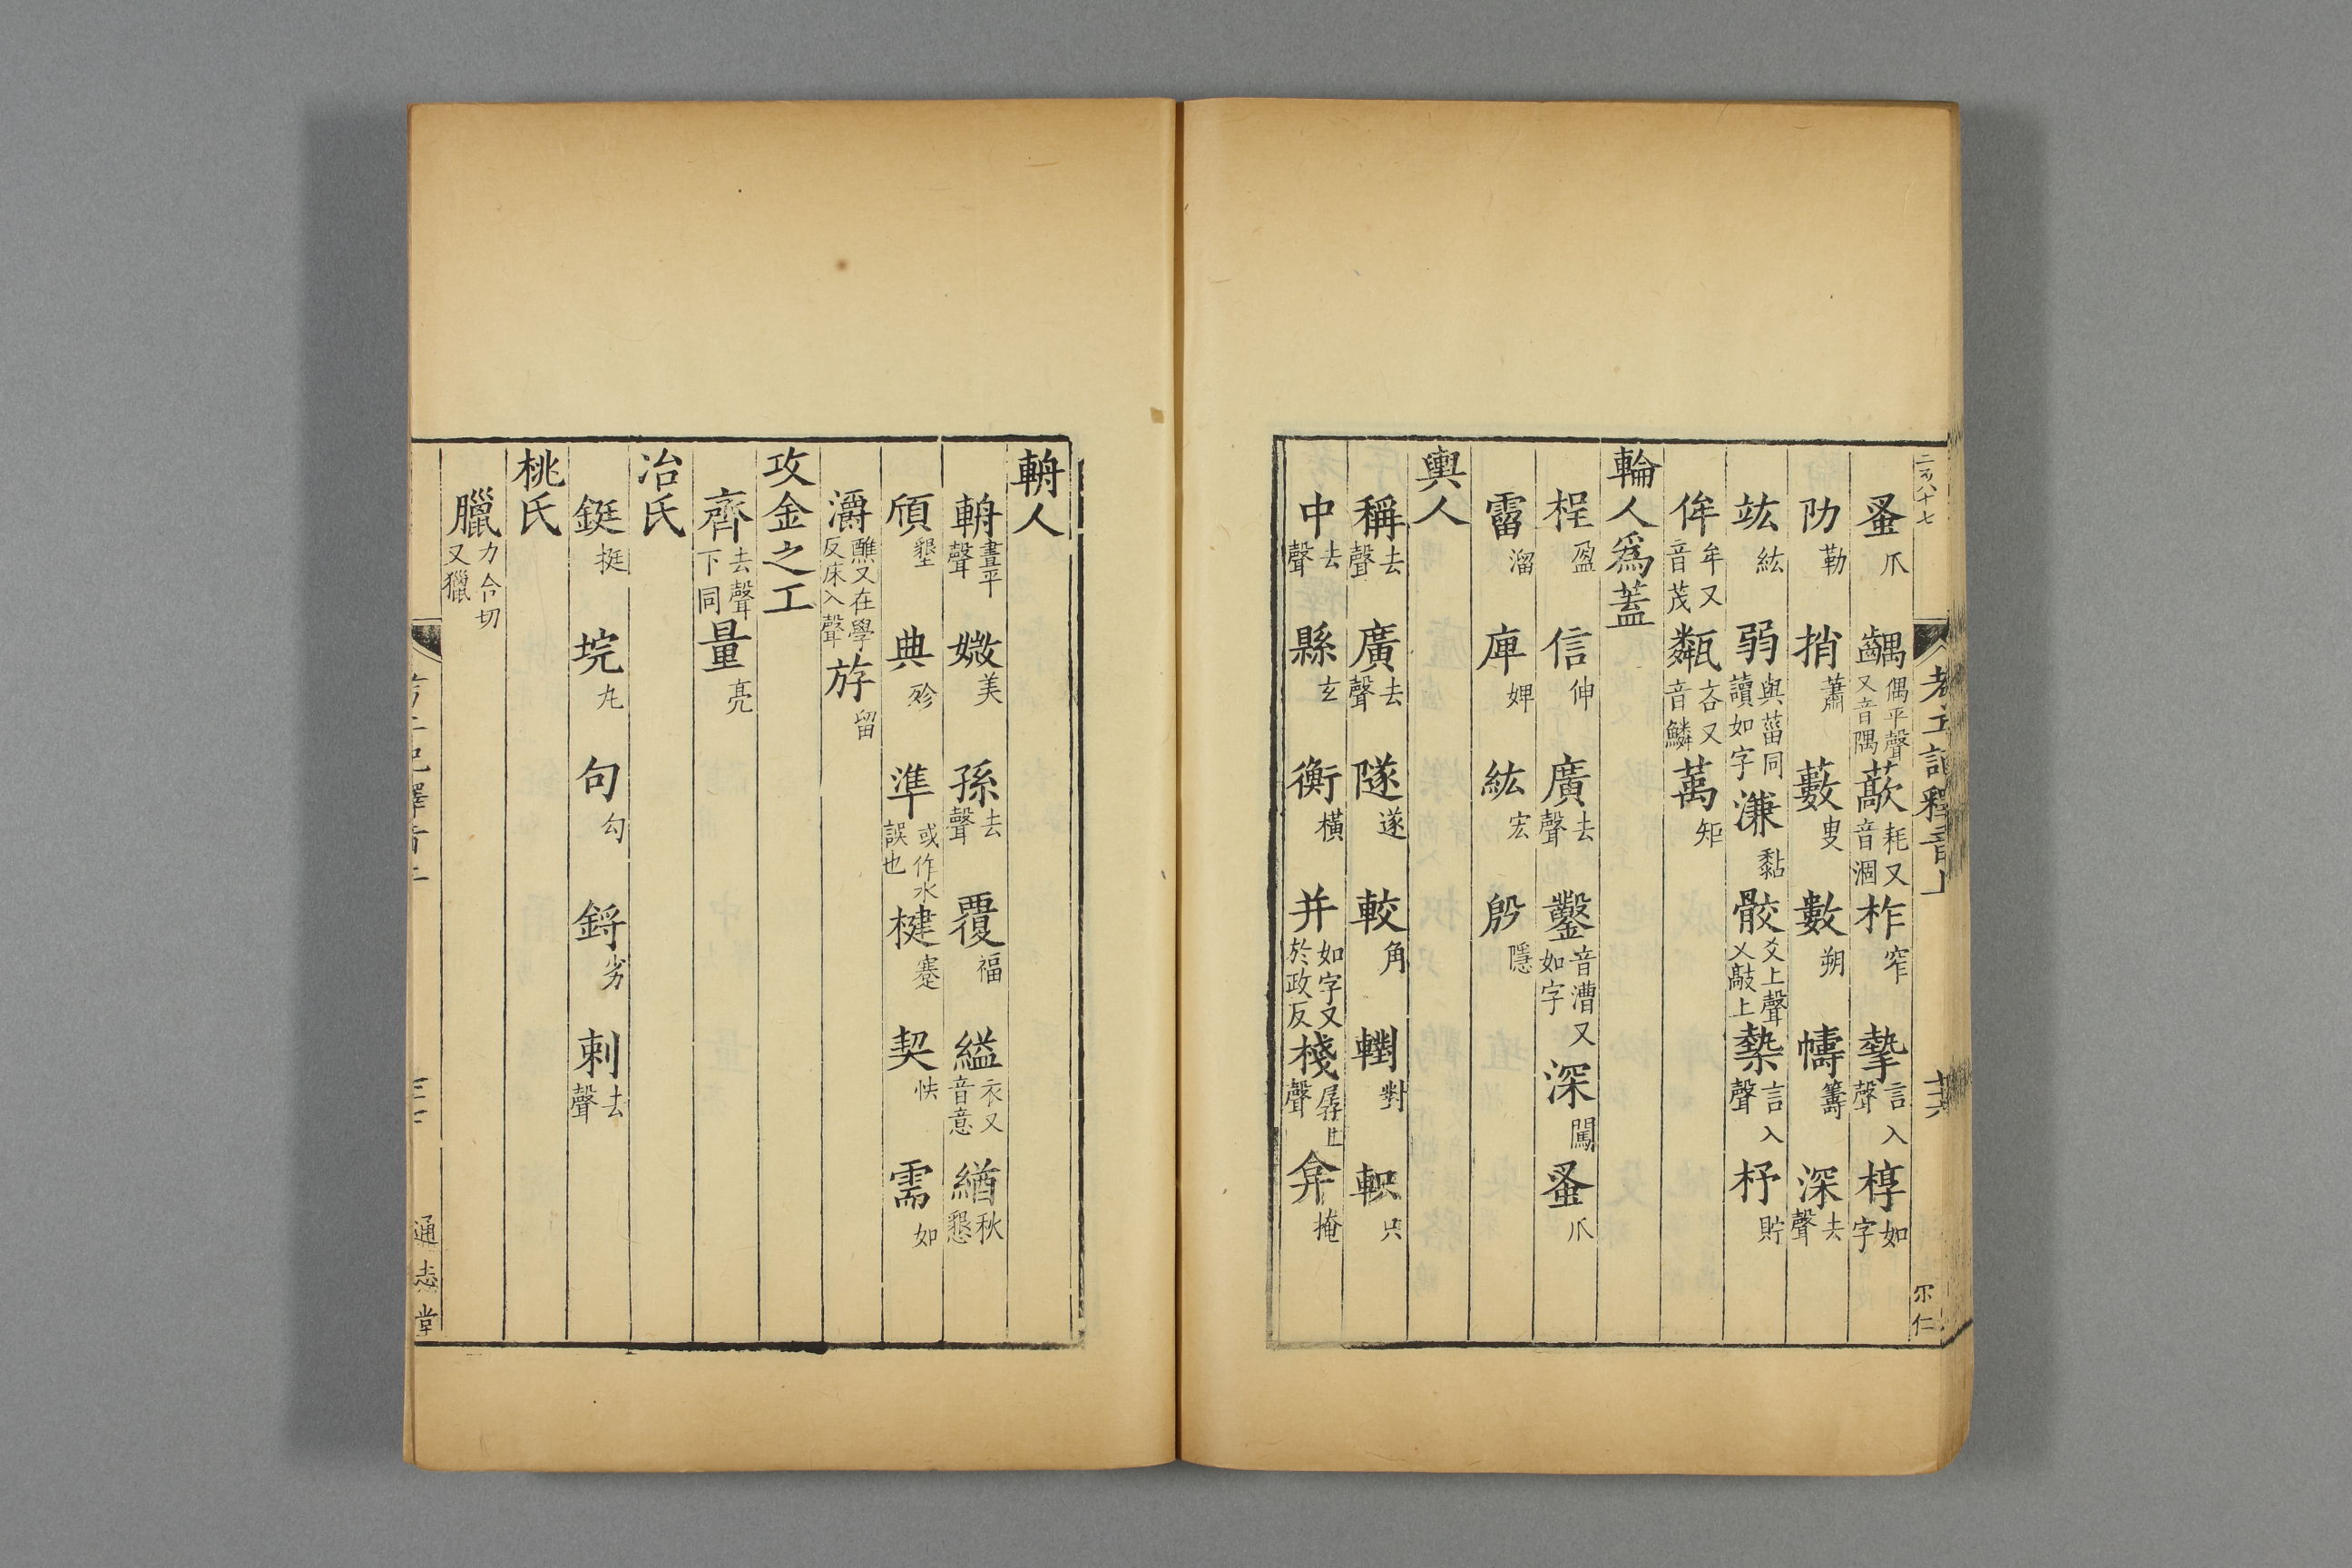 蚤爪 齵偶平聲又音隅 藃耗又音涸 柞窄 摯言入聲 椁如字
阞勒 捎蕭 藪叟 數朔 幬籌 深去聲
竑紘 弱與菑同讀如字 溓黏 骹爻上聲又敲上 槷言入聲 杼貯
侔牟又音茂 甐吝又音鱗 萬矩
輪人爲蓋
桯盈 信伸 廣去聲 鑿音漕又如字 深闖 蚤爪
霤溜 庳婢 紘宏 㱿隱
輿人
稱去聲 廣去聲 隧遂 較角 轛對 軹
中去聲 縣玄 衡橫 并如字又於政反 棧孱上聲 弇掩
輈人
輈晝平聲 媺美 孫去聲 覆福 縊衣又音意 緧秋
頎懇 典殄 準或作水誤也 楗蹇 契怯 需如
灂醮又在學反床入聲 斿留
攻金之工
齊去聲下同 量亮
冶氏
鋌挺 垸丸 句勾 鋝劣 刺去聲
桃氏
臘力合切又獵
通志堂